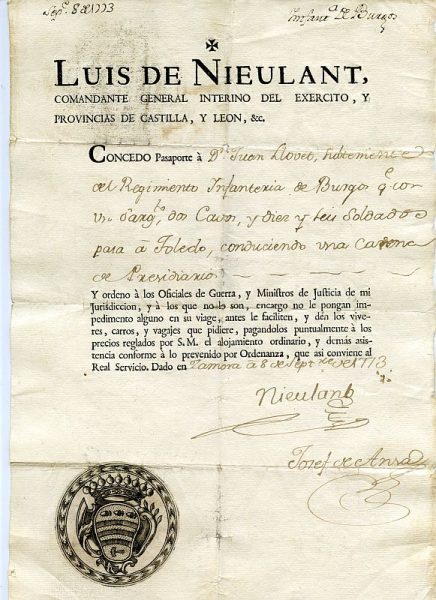 Sep.e 8 de 1773
Infant.a de Burgos
LUIS DE NIEULANT,
COMANDANTE GENERAL INTERINO DEL EXERCITO, Y
PROVINCIAS DE CASTILLA, Y LEON, &c.
CONCEDO Pasaporte à D.n Juan Llovet, subteniente
del Regimiento Infanteria de Burgos q.e con
un Sarg.to, dos Cavos, y diez y seis Soldados
pasa à Toledo, conduciendo una cadena
de Presidiarios
Y ordeno à los Oficiales de Guerra, y Ministros de Justicia de mi
Jurisdiccion, y à los que no lo son, encargo no le pongan im-
pedimento alguno en su viage, antes le faciliten, y den los vive-
res, carros, y vagajes que pidiere, pagandolos puntualmente à los
precios reglados por S. M. el alojamiento ordinario, y demás asis-
tencia conforme à lo prevenido por Ordenanza, que asi conviene al
Real Servicio. Dado en Zamora à 8 de Sept.re de 1773
Nieulant
Josef de Anra